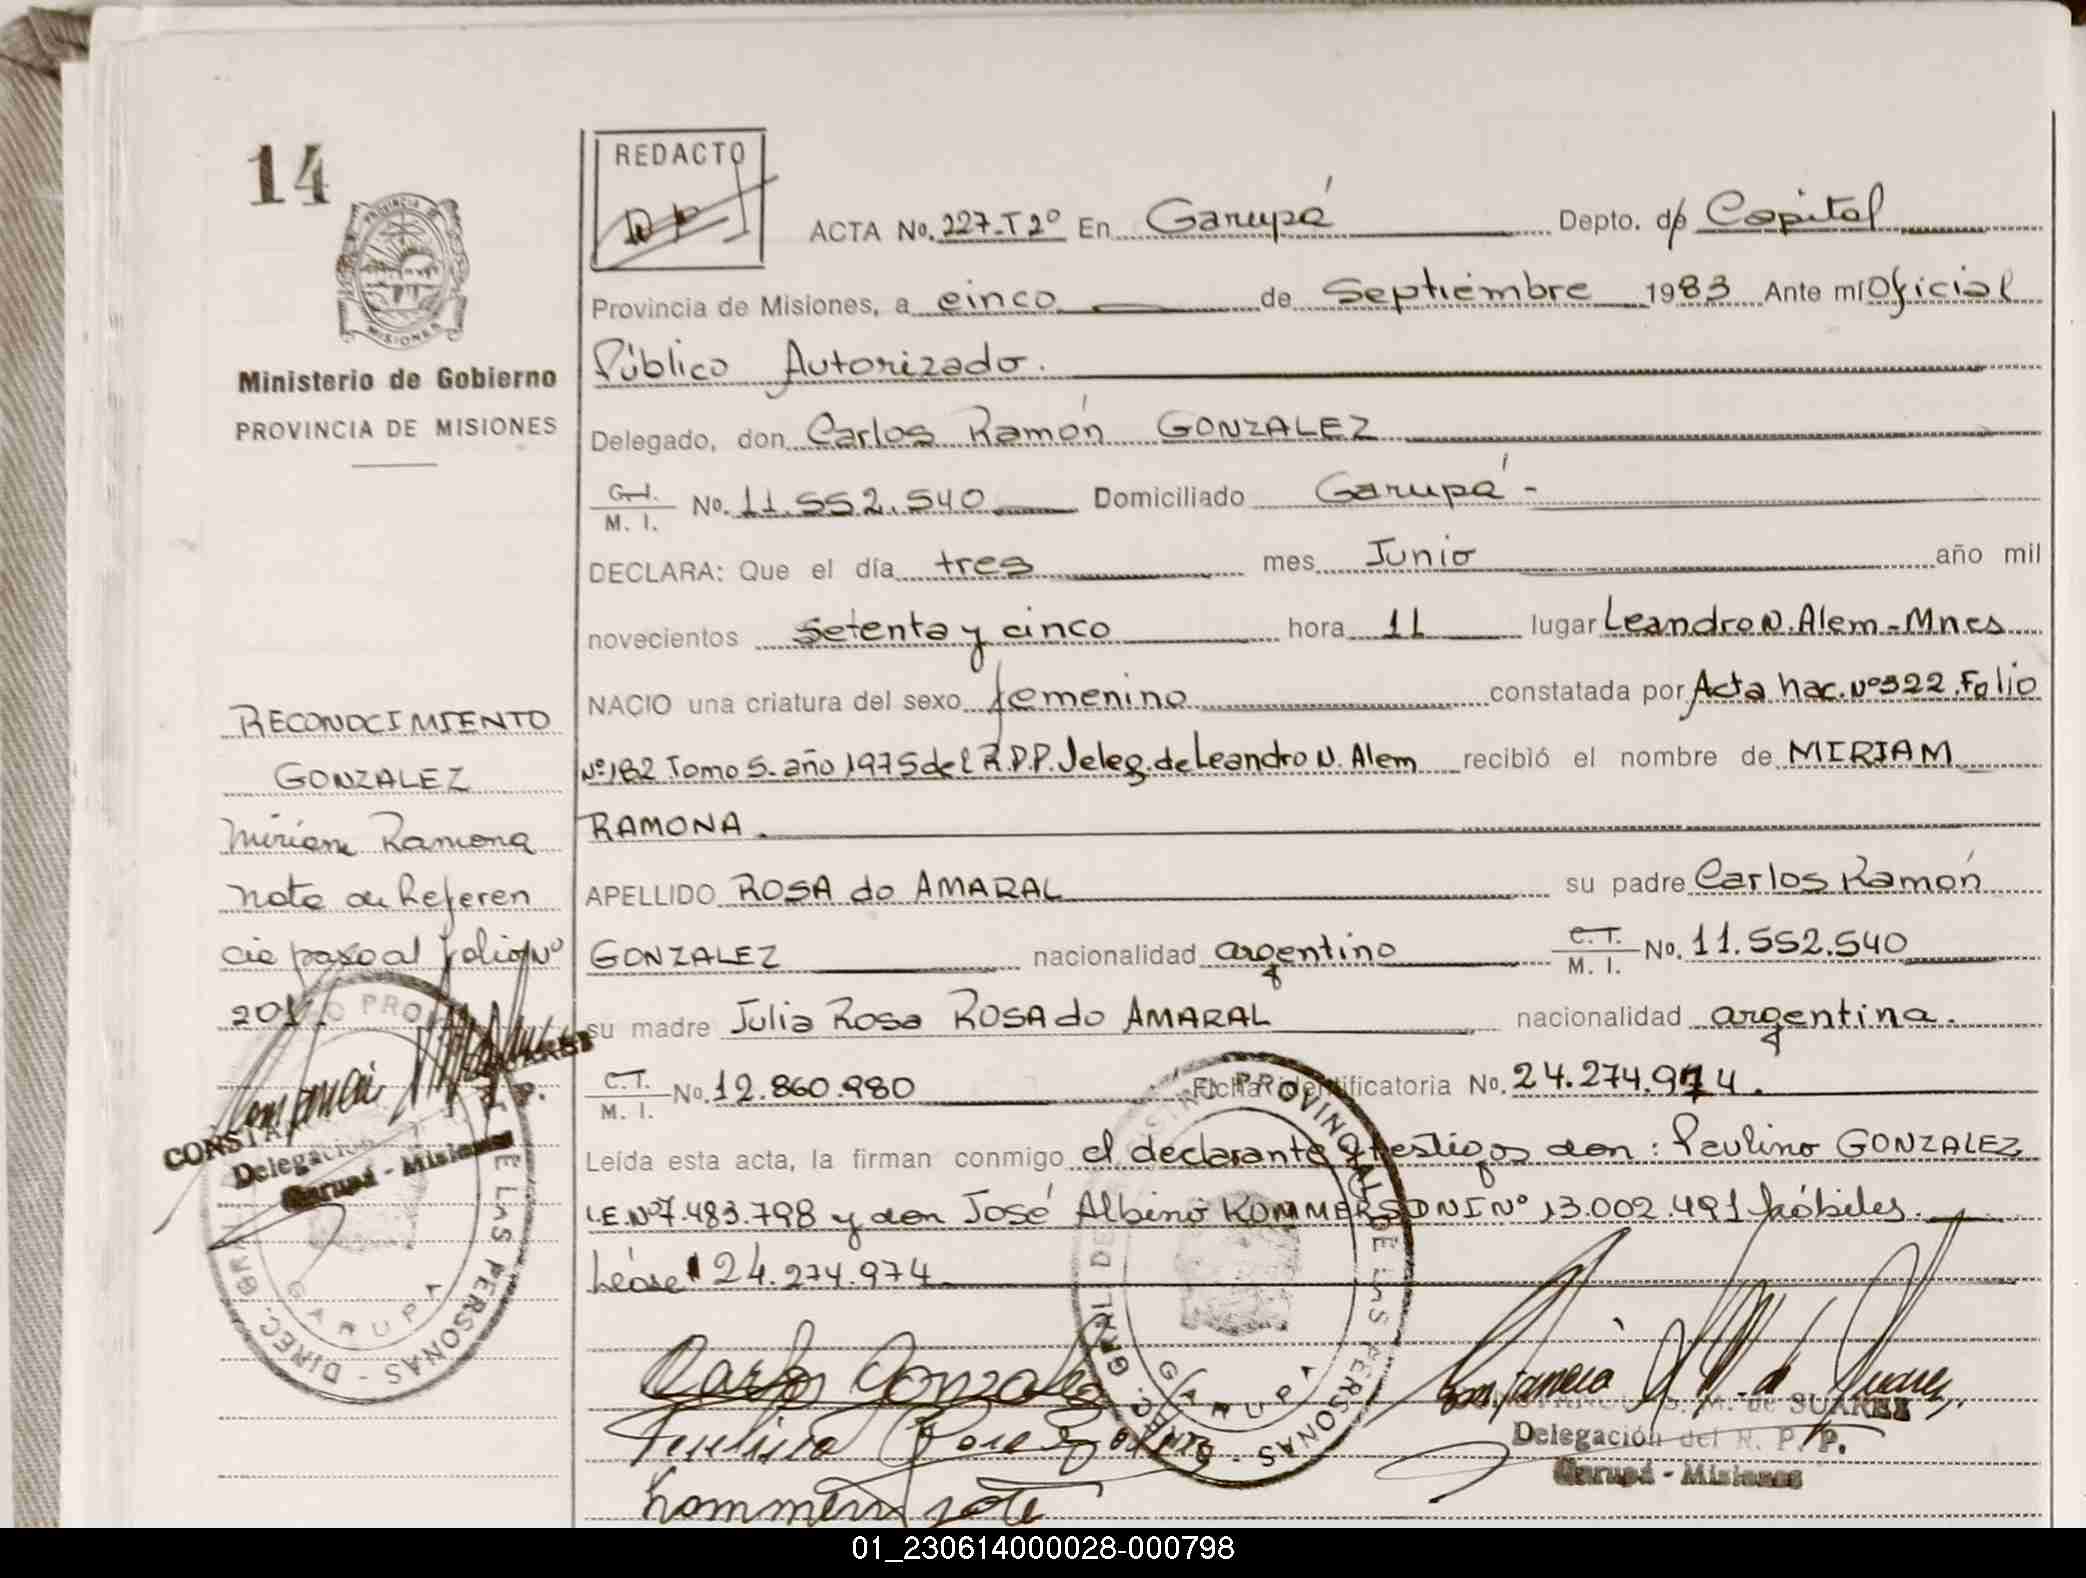 14
REDACTO
ACTA No. 227-T2º En Garupá Depto. de Capital
Provincia de Misiones, a cinco de Septiembre 1983 Ante mí Oficial
Público Autorizado.
Ministerio de Gobierno
PROVINCIA DE MISIONES
Delegado, don Carlos Ramón GONZALEZ
C.I. M. I. No. 11.552.540 Domiciliado Garupá -
DECLARA: Que el día tres mes Junio año mil
novecientos setenta y cinco hora 11 lugar Leandro N. Alem - Mnes
NACIO una criatura del sexo femenino constatada por Acta Nac. Nº 322. Folio
Nº 182 Tomo 5. año 1975 del R.P.P. Deleg. de Leandro N. Alem recibió el nombre de MIRIAM
RAMONA.
APELLIDO ROSA do AMARAL su padre Carlos Ramón
GONZALEZ nacionalidad argentino C.I. M. I. No. 11.552.540
su madre Julia Rosa ROSA do AMARAL nacionalidad argentina.
C.I. M. I. No. 12.860.980 Ficha identificatoria No. 24.274.974.
Leída esta acta, la firman conmigo el declarante y testigos don: Paulino GONZALEZ
L.E. Nº 7.483.798 y don José Albino KOMMERS DNI Nº 13.002.491 hábiles.
Léase: 24.274.974
RECONOCIMIENTO
GONZALEZ
Miriam Ramona
Nota de Referen
cia paso al folio Nº
201.
Delegación
Garupá - Misiones
PERSONAS - DIREC. GRAL
GARUPA
REGISTRO PROVINCIAL DE LAS PERSONAS - DIREC. GRAL.
GARUPA
Carlos Gonzalez
M. de SUAREZ
Delegación del R. P. P.
Garupá - Misiones
01_230614000028-000798